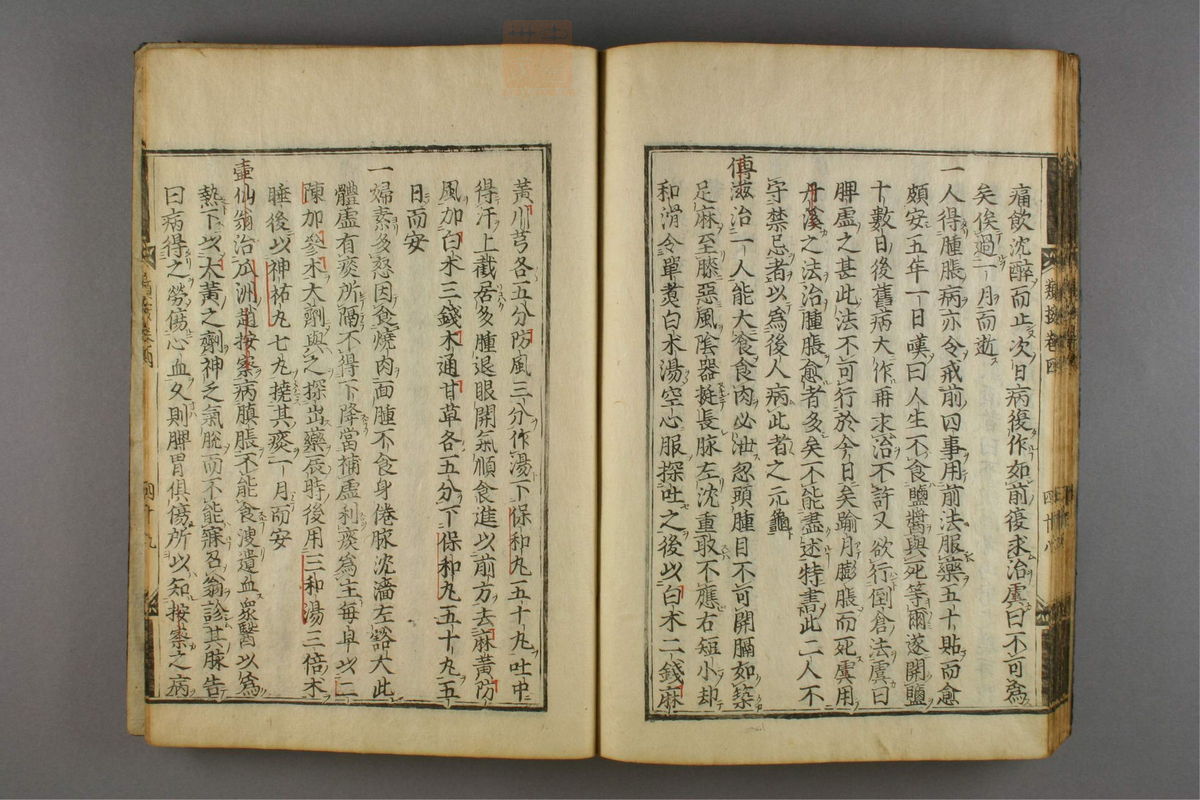 痛飲沈醉而止次日病復作如前復求治虞曰不可為
矣俟過一月而逝
一人得腫脹病亦令戒前四事用前法服藥五十貼而愈
頗安五年一日嘆曰人生不食鹽醬與死等爾遂開鹽
十數日後舊病大作再求治不許又欲行倒倉法虞曰
脾虛之甚此法不可行於今日矣踰月膨脹而死虞用
丹溪之法治腫脹愈者多矣不能盡述特書此二人不
守禁忌者以為後人病此者之元龜
傅滋治一人能大飡食肉必泄忽頭腫目不可開膈如築
足麻至膝惡風陰器挺長脉左沈重取不應右短小却
和滑令單煑白朮湯空心服探吐之後以白朮二錢麻
類按卷四
四十八
黃川芎各五分防風三分作湯下保和丸五十丸吐中
得汗上截居多腫退眼開氣順食進以前方去麻黃防
風加白朮三錢木通甘草各五分下保和丸五十丸五
日而安
一婦素多怒因食燒肉面腫不食身倦脉沈濇左豁大此
體虛有痰所隔不得下降當補虛利痰為主每早以二
陳加參朮大劑與之探出藥辰時後用三和湯三倍朮
睡後以神祐丸七丸撓其痰一月而安
壺仙翁治瓜洲趙按察病䐜脹不能食溲遺血眾醫以為
熱下以大黃之劑神乏氣脫而不能寐召翁診其脉告
曰病得之勞傷心血久則脾胃俱傷所以知按察之病
四十九